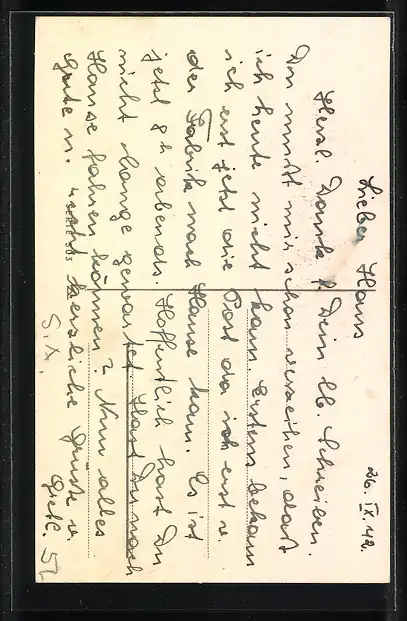 26. IX. 42.
Lieber Hans
Herzl. Dank f. Dein lb. Schreiben.
Du mußt mir schon verzeihen, daß
ich heute nicht kam. Erstens bekam
ich erst jetzt die Post da ich erst v.
der Fabrik nach Hause kam. Es ist
jetzt 8 h abends. Hoffentlich hast Du
nicht lange gewartet. Hast Du nach
Hause fahren können? Nun alles
Gute u. recht herzliche Grüße v.
S. X.